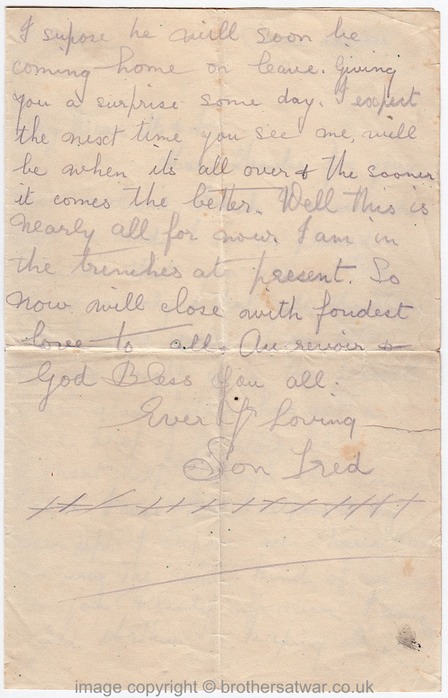 I supose he will soon be
coming home on leave. Giving
you a surprise some day. I expect
the next time you see me, will
be when its all over & the sooner
it comes the better. Well this is
nearly all for now. I am in
the trenches at present. So
now will close with fondest
love to all. Au revoir &
God Bless You all.
Ever Yr Loving
Son Fred
image copyright © brothersatwar.co.uk